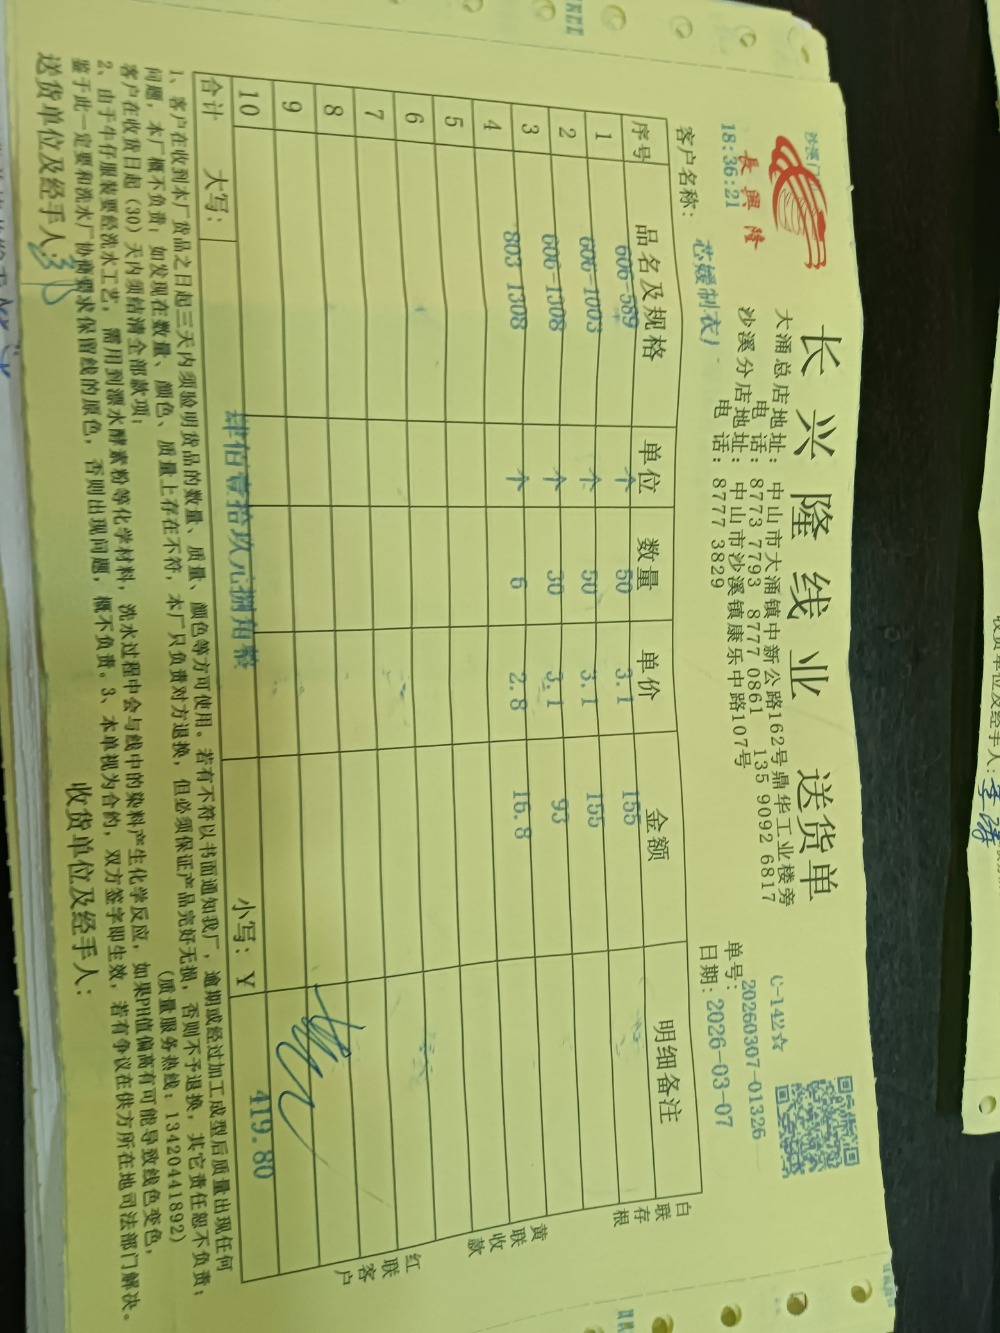 長興隆
18:36:21
长兴隆线业 送货单
大涌总店地址：中山市大涌镇中新公路162号鼎华工业楼旁
电 话：8773 7793 8777 0861 135 9092 6817
沙溪分店地址：中山市沙溪镇康乐中路107号
电 话：8777 3829
C-142☆
单号：20260307-01326
日期：2026-03-07
客户名称：芯媛制衣厂
序号 品名及规格 单位 数量 单价 金额 明细备注
1 606-589 个 50 3.1 155
2 606-1003 个 50 3.1 155
3 606-1308 个 30 3.1 93
4 803 1308 个 6 2.8 16.8
5
6
7
8
9
10
合计 大写：肆佰壹拾玖元捌角整 小写：¥ 419.80
白联存根
黄联收款
红联客户
1、客户在收到本厂货品之日起三天内须验明货品的数量、质量、颜色等方可使用。若有不符以书面通知我厂，逾期或经过加工成型后质量出现任何
问题，本厂概不负责；如发现在数量、颜色、质量上存在不符，本厂只负责对方退换，但必须保证产品完好无损，否则不予退换，其它责任恕不负责；
客户在收货日起（30）天内须结清全部款项； （质量服务热线：13420441892）
2、由于牛仔服装要经洗水工艺，需用到漂水酵素粉等化学材料，洗水过程中会与线中的染料产生化学反应，如果PH值偏高有可能导致线色变色，
鉴于此一定要和洗水厂协商要求保留线的原色，否则出现问题，概不负责。3、本单视为合约，双方签字即生效，若有争议在供方所在地司法部门解决。
送货单位及经手人：
收货单位及经手人：
收货单位及经手人：